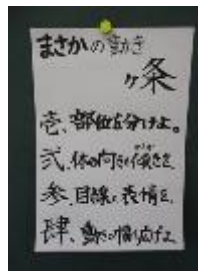 まさかの動き
ヶ条
壱、部位を分けよ。
弐、体の向きを傾きを
参、目線、表情を、
肆、の